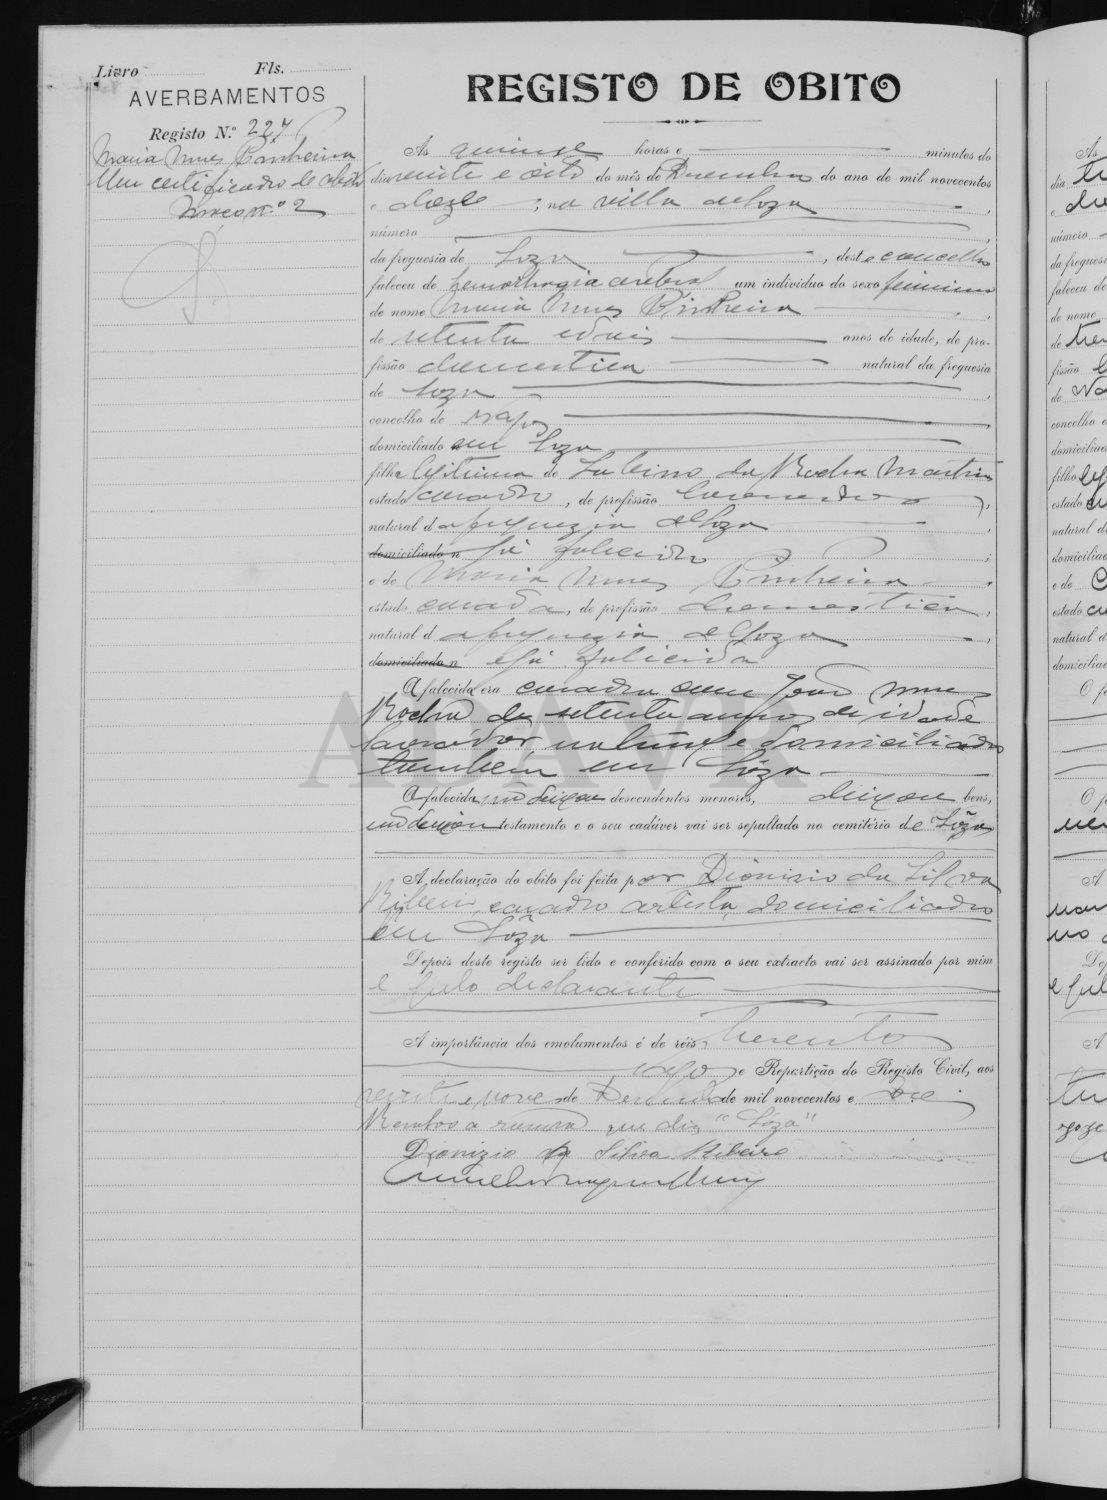 Livro Fls.
AVERBAMENTOS
Registo N.º 227
Maria Nunes Pinheira
Um certificado de obito
Maço n.º 2
REGISTO DE OBITO
Ás quinze horas e minutos do
dia vinte e oito do mês de Dezembro do ano de mil novecentos
e doze ; na villa de Soza
número
da freguesia de Soza , deste concelho
faleceu de hemorrhagia cerebral um individuo do sexo feminino
de nome Maria Nunes Pinheira
de setenta e dois anos de idade, de pro-
fissão domestica natural da freguesia
de Soza
concelho de Vagos
domiciliado em Soza
filha legitima de Sabino da Rocha Martins
estado casado, de profissão lavrador
natural da freguezia de Soza
domiciliado n já falecido ;
e de Maria Nunes Pinheira
estado casada, de profissão domestica,
natural da freguezia de Soza
domiciliado n e já falicida
A falecida era casada com João Nunes
Rocha de setenta annos de idade
lavrador, natural e domiciliado
tambem em Sôza
A falecida não deixou descendentes menores, deixou bens,
não deixou testamento e o seu cadáver vai ser sepultado no cemitério de Sôza
A declaração do obito foi feita por Dionizio da Silva
Ribeiro, casado artista, domiciliado
em Sôza
Depois deste registo ser lido e conferido com o seu extracto vai ser assinado por mim
e pelo declarante
A importância dos emolumentos é de réis, trezentos
Repartição do Registo Civil, aos
vinte e nove de Dezembro de mil novecentos e doze
Resalvo a rasura que diz "Sôza"
Dionizio da Silva Ribeiro
ADAVR